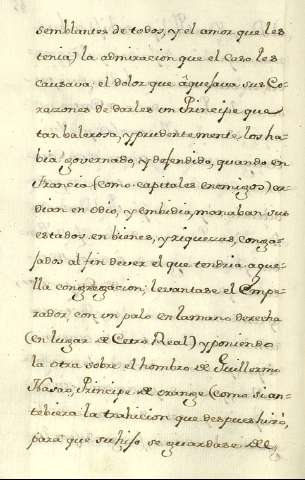 semblantes de todos, y el amor que les
tenia) la admiracion que el Caso les
causava; el dolor que aquejava sus Co-
razones de darles un Principe que
tan balerosa, y prudentemente los ha-
bia governado, y defendido, quando en
Francia (como capitales enemigos) ar-
dian en odio, y embidia, manaban sus
estados en bienes, y riquezas, congas
jados al fin dever el que tendria aque-
lla congregacion; levantase el Empe-
rador, con un palo en lamano derecha
(en lugar de Cetro Real) y poniendo
la otra sobre el hombro de Guillermo
Nasao, Principe de orange (como si an-
tebiera la trahicion que despues hizo,
para que su hijo se guardase del